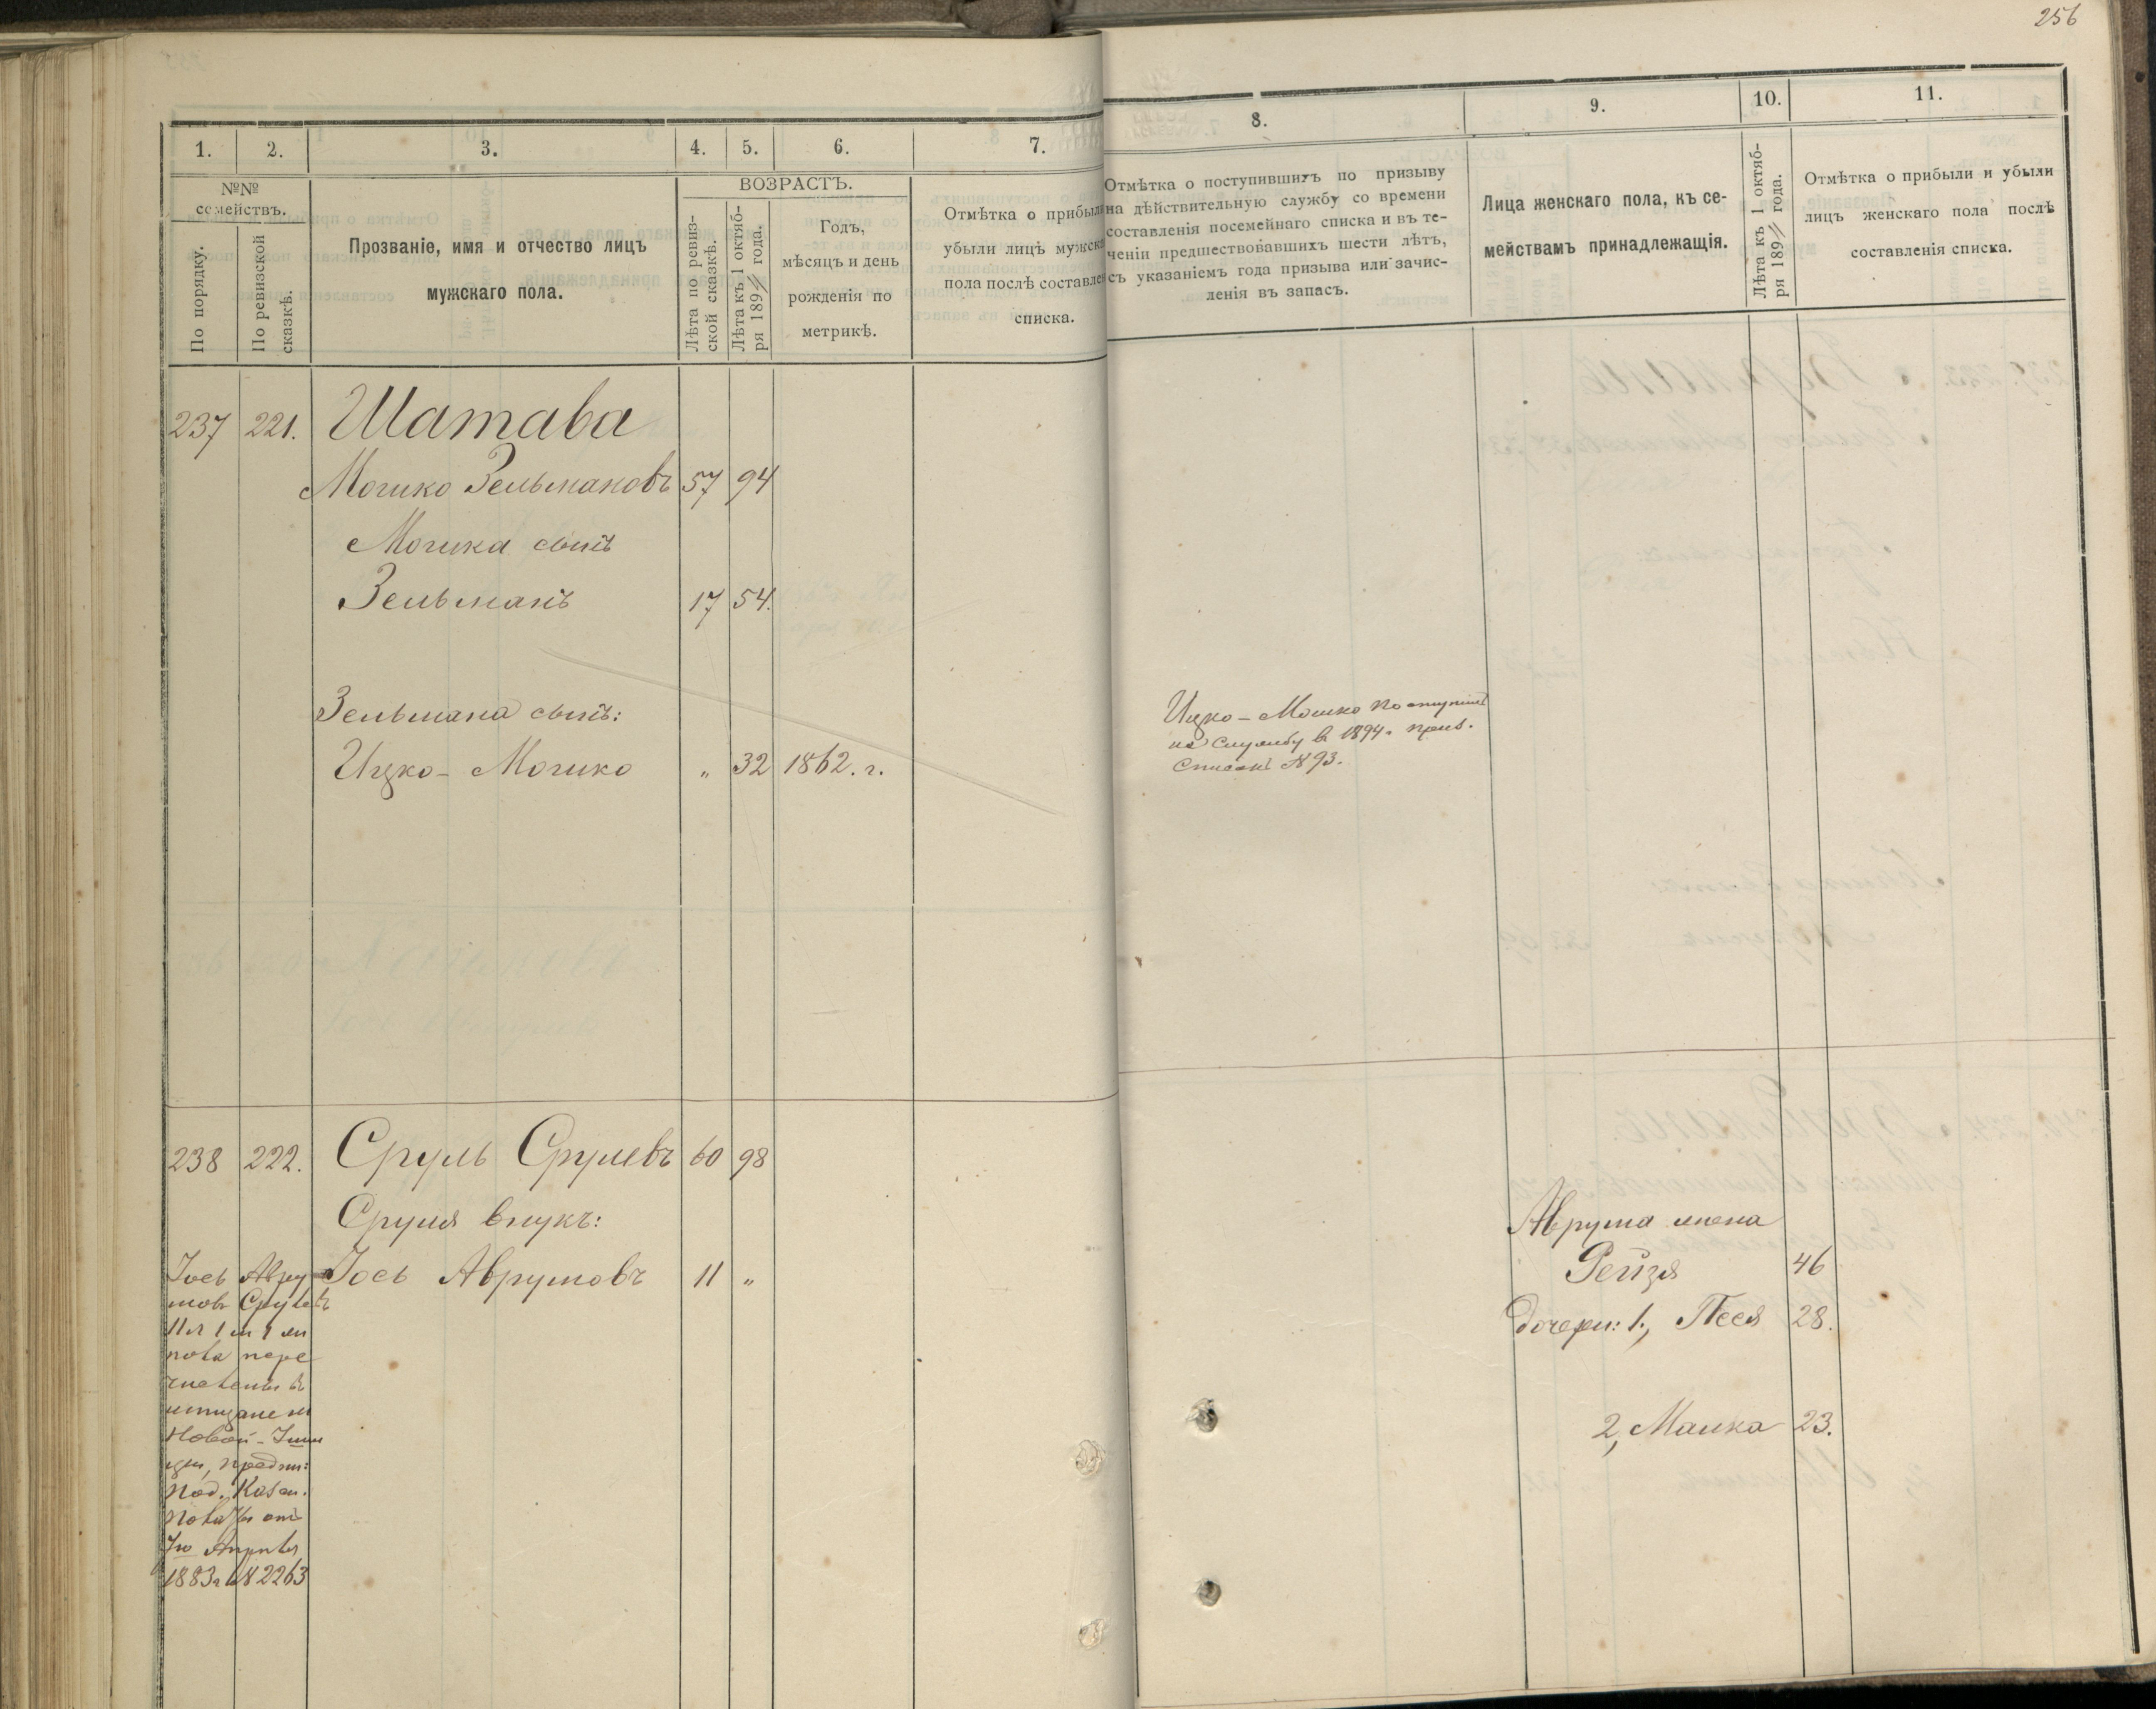 256
1. 2. 3. 4. 5. 6. 7.
№№ семействъ.
По порядку.
По ревизской сказкѣ.
Прозваніе, имя и отчество лицъ
мужскаго пола.
ВОЗРАСТЪ.
Лѣта по ревиз-
ской сказкѣ.
Лѣта къ 1 октяб-
ря 189 года.
Годъ,
мѣсяцъ и день
рожденія по
метрикѣ.
Отмѣтка о прибыли
убыли лицъ мужска
пола послѣ составлен
списка.
237 221. Шатава
Мошко Зельмановъ 57 94
Мошка сынъ
Зельманъ 17 54.
Зельмана сынъ:
Ицко-Мошко „ 32 1862. г.
238 222. Сруль Срулевъ 60 98
Сруля внукъ:
Іось Аврумовъ 11 „
Іось Авру-
мовъ Срулевъ
пере
Новой-
1883 г. № 2263
8. 9. 10. 11.
Отмѣтка о поступившихъ по призыву
на дѣйствительную службу со времени
составленія посемейнаго списка и въ те-
ченіи предшествовавшихъ шести лѣтъ,
съ указаніемъ года призыва или зачис-
ленія въ запасъ.
Лица женскаго пола, къ се-
мействамъ принадлежащія.
Лѣта къ 1 октяб-
ря 189 года.
Отмѣтка о прибыли и убыли
лицъ женскаго пола послѣ
составленія списка.
Ицко-Мошко поступилъ
на службу в 1894 г. приз.
списокъ № 93.
Аврума жена
Рейзя 46
дочери: 1., Песя 28.
2, Малка 23.